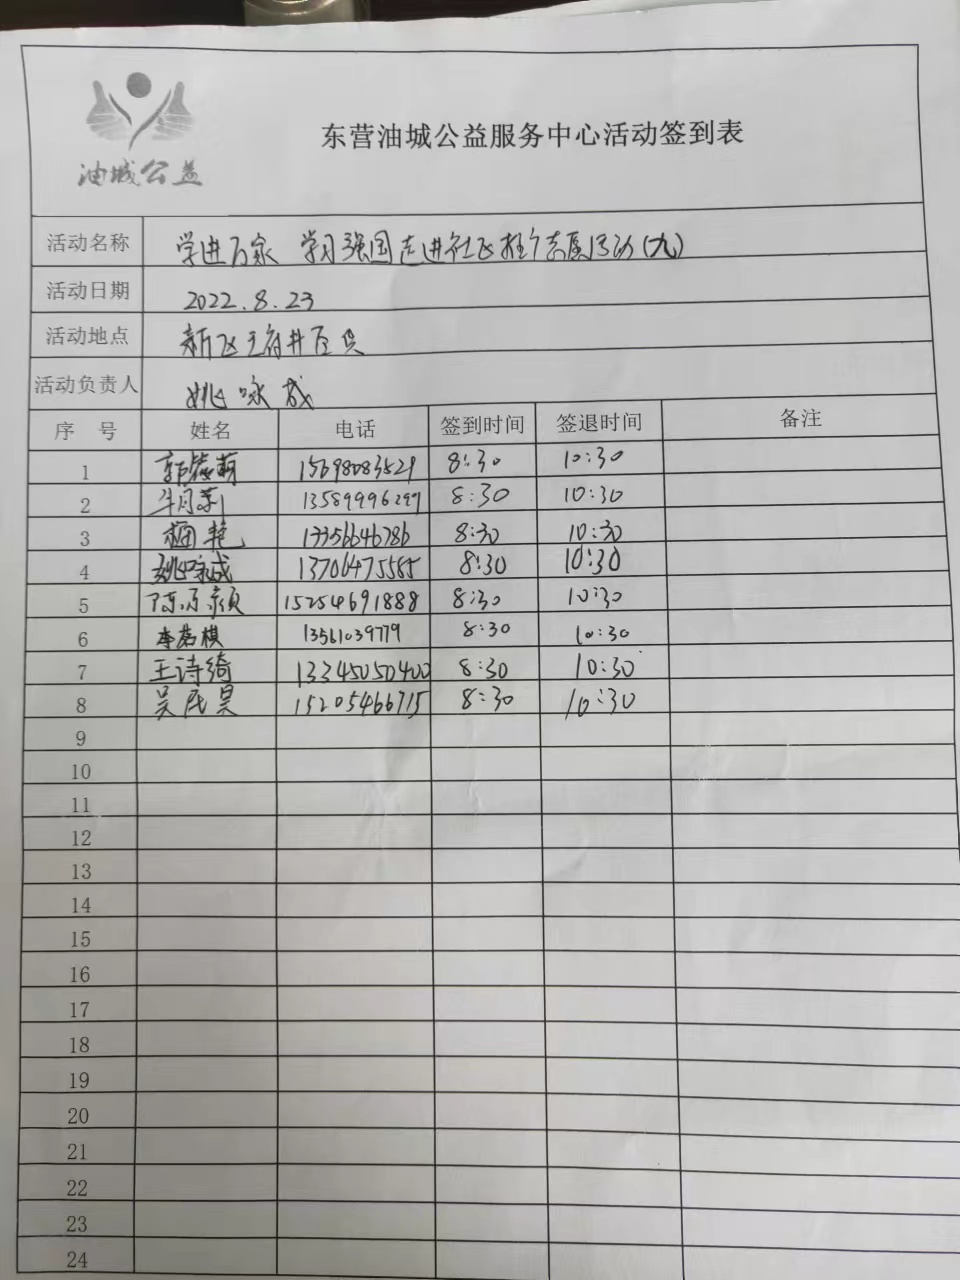 油城公益
东营油城公益服务中心活动签到表
活动名称 学进万家 学习强国走进社区推介志愿活动(九)
活动日期 2022.8.23
活动地点 新区王府井百货
活动负责人 姚咏成
序 号 姓名 电话 签到时间 签退时间 备注
1 8:30 10:30
2 牛月莉 13589996299 8:30 10:30
3 13356646786 8:30 10:30
4 姚咏成 13706475585 8:30 10:30
5 15254691888 8:30 10:30
6 李若棋 13561039779 8:30 10:30
7 王诗绮 13345050400 8:30 10:30
8 吴民昊 15205466715 8:30 10:30
9
10
11
12
13
14
15
16
17
18
19
20
21
22
23
24